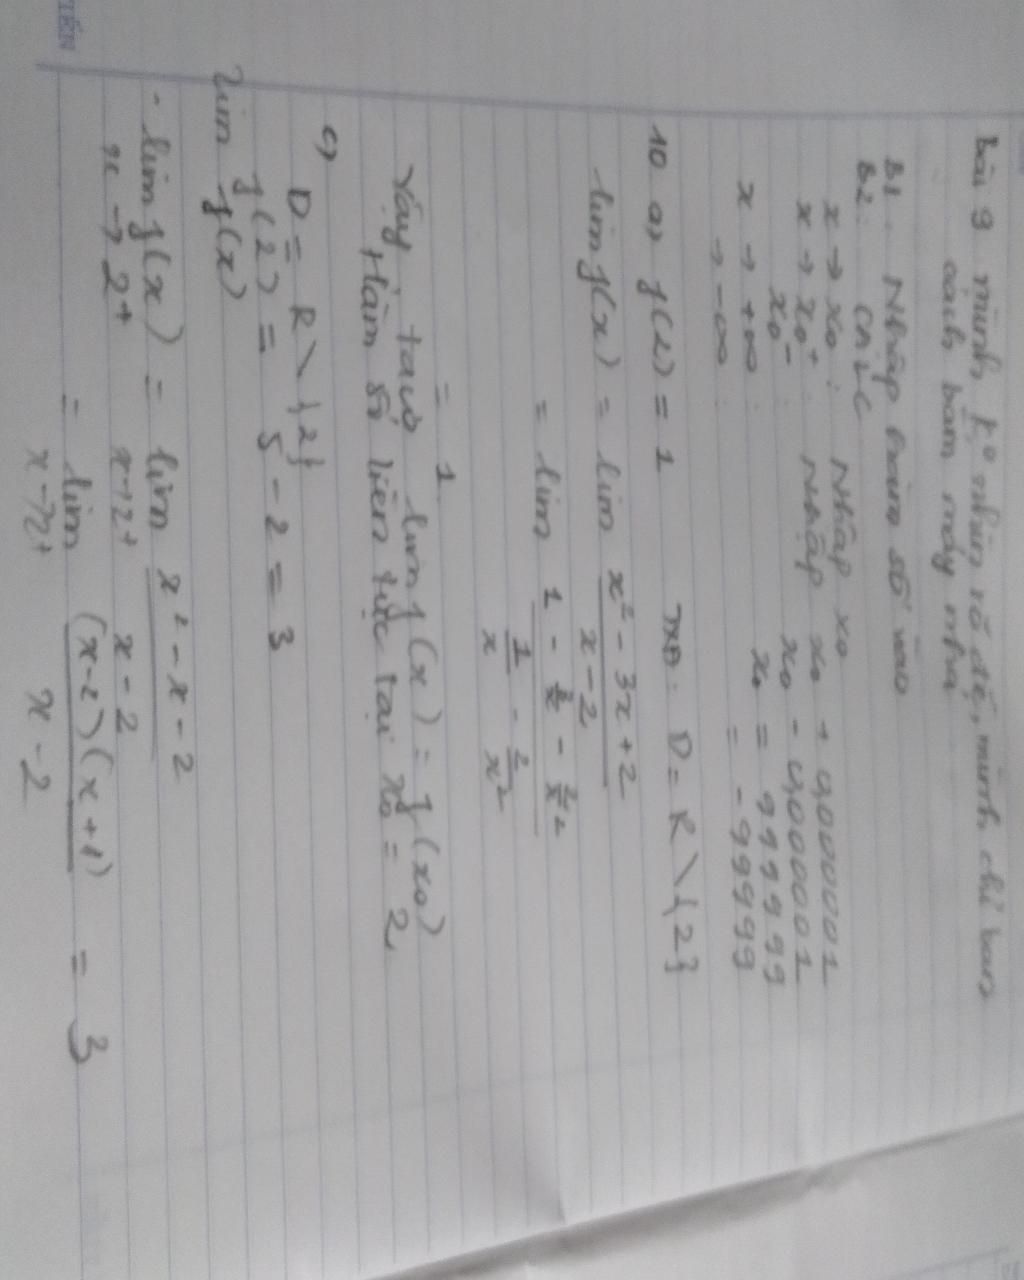 bài 9 mình k° nhìn rõ đề, mình chỉ bạn
cách bấm máy nha
B1. Nhập hàm số vào
B2: CALC
x → x₀ : Nhập x₀
x → x₀⁺ : Nhập x₀ + 0,000001
x₀⁻ x₀ - 0,000001
x → +∞ : x₀ = 999999
→ -∞ : = -99999
10 a) f(2) = 1 TXĐ: D = R \ {2}
lim f(x) = lim (x² - 3x + 2)/(x - 2)
= lim
= 1
Vậy ta có lim f(x) = f(x₀)
Hàm số liên tục tại x₀ = 2
c)
D = R \ {2}
f(2) = 5 - 2 = 3
lim f(x)
- lim f(x) = lim (x² - x - 2)/(x - 2)
x → 2⁺ x → 2⁺
= lim (x-2)(x+1)/(x - 2) = 3
x → 2⁺
TIẾN